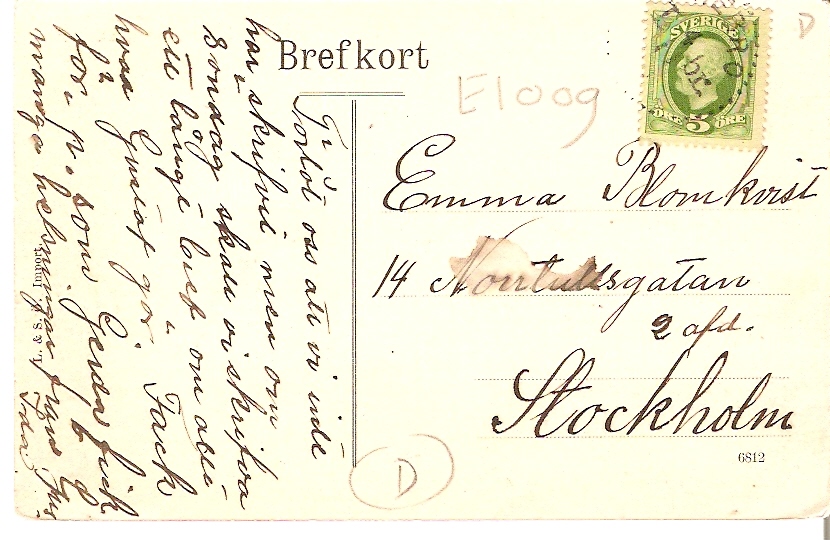 Brefkort
E1009
SVERIGE
ÖRE 5 ÖRE
D
Emma Blomkvist
14 Norrtullsgatan
2 afd.
Stockholm
6812
D
oss att vi inte
har skrifvit men om
Söndag skall vi skrifva
ett långt bref om allt
hvad Gustaf gör. Tack
för p. som Gerda fick
många helsningar från
Ida
L. & S. Import.